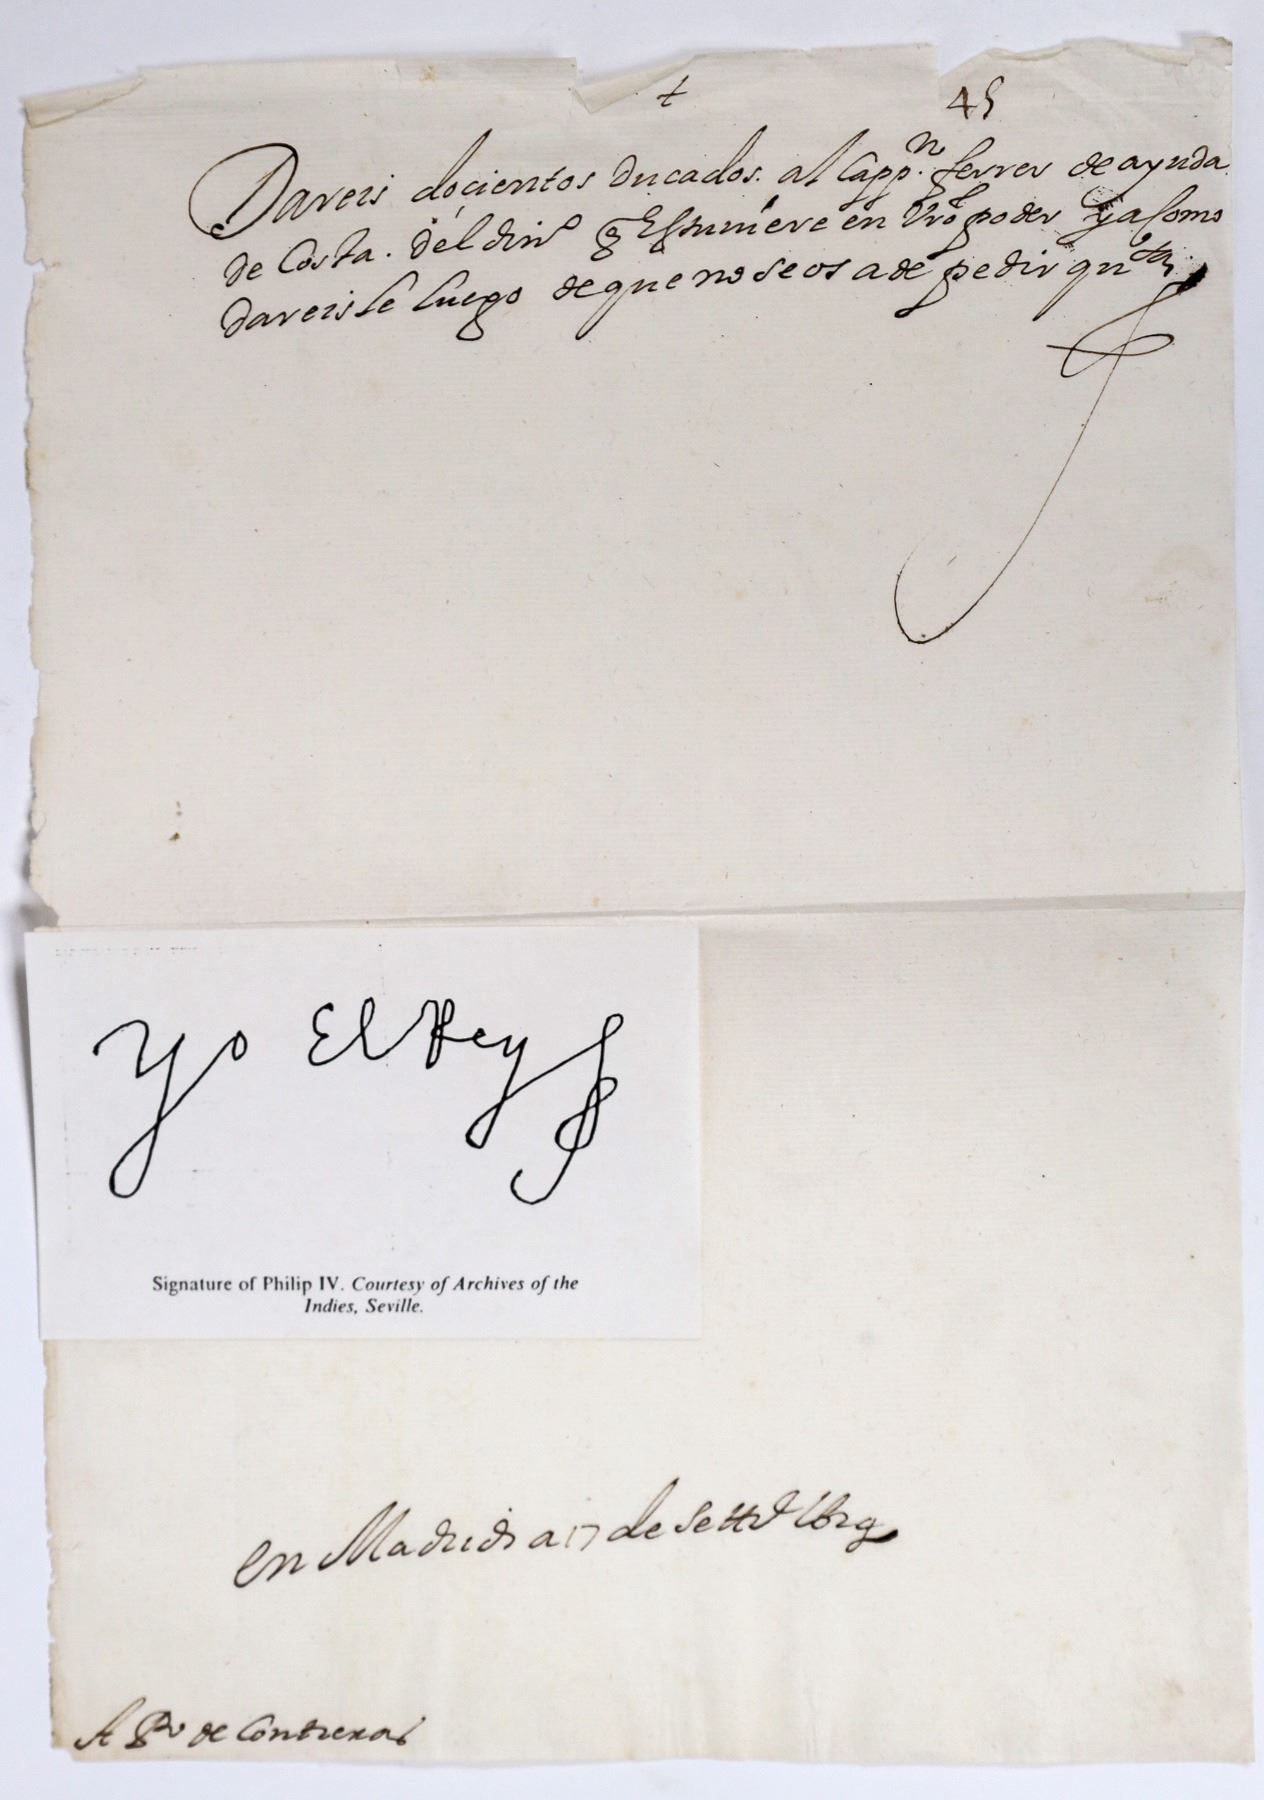 + 45
Dareis docientos ducados. al Capp.n ferrer de ayuda
de Costa. del dino q Estuuiere en vro poder y a Como
dareisle luego de que no se os a de pedir qta
Yo El Rey
Signature of Philip IV. Courtesy of Archives of the
Indies, Seville.
en Madrid a 17 de Settre
A Po de Contreras